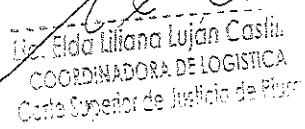 Lic. Elda Liliana Luján Castil
COORDINADORA DE LOGISTICA
Corte Superior de Justicia de Piura